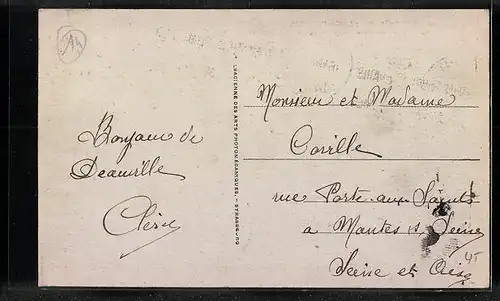 14
Bonjour de
Deauville
L'ALSACIENNE DES ARTS PHOTOMÉCANIQUES, - STRASBOURG
Monsieur et Madame
Coville
rue Porte aux Saints
a Mantes s Seine
Seine et Oise